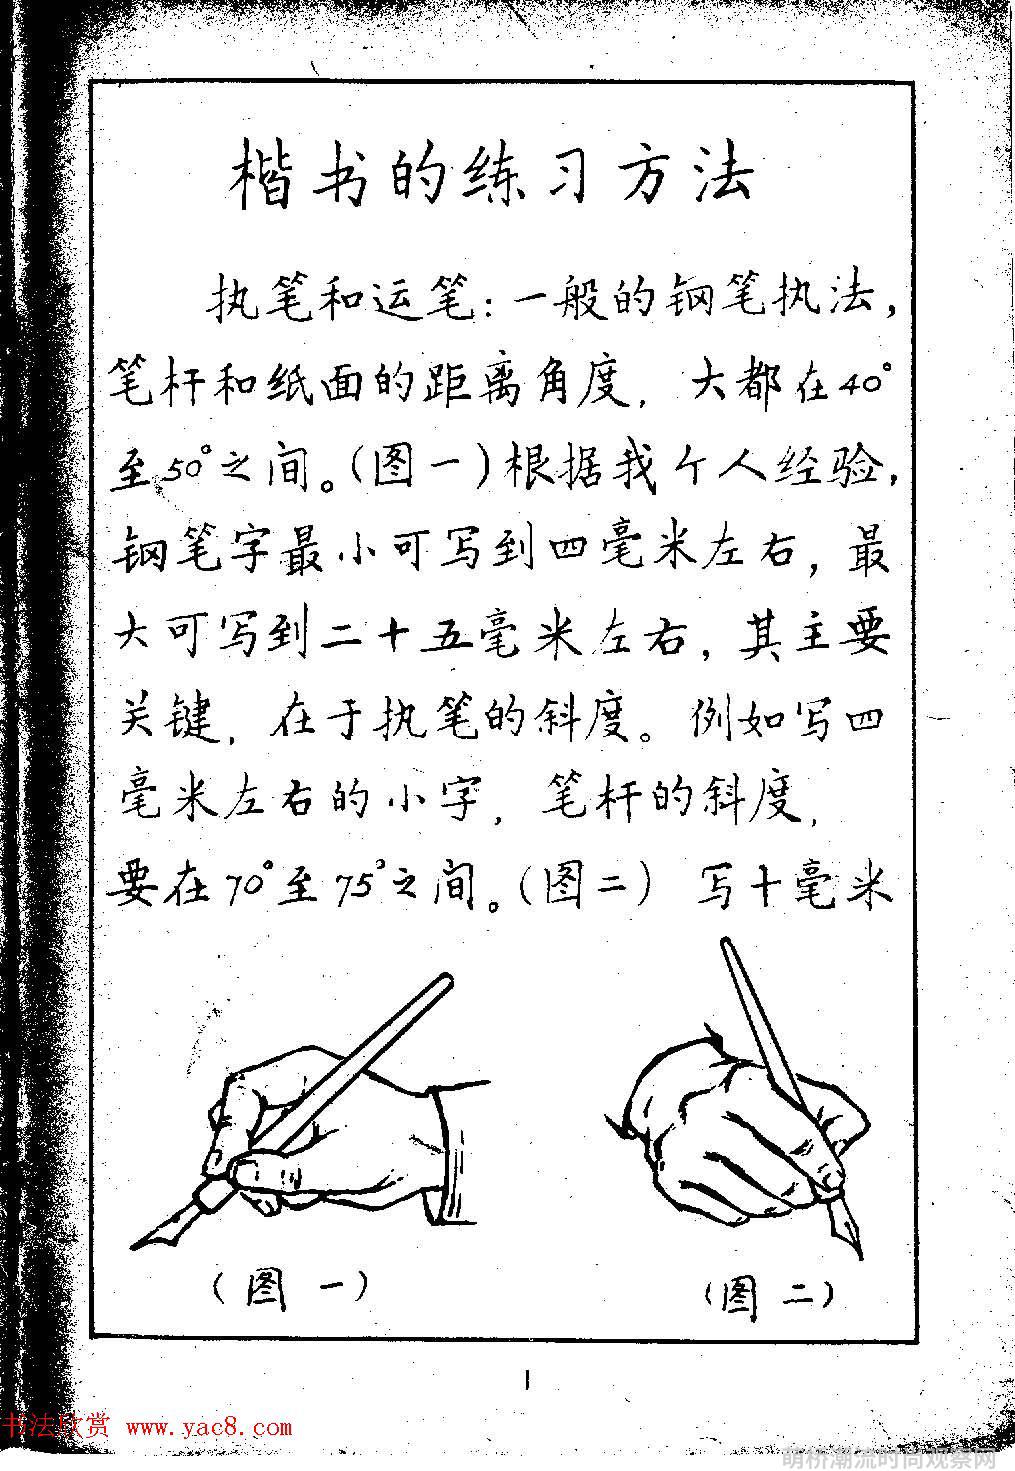 楷书的练习方法
执笔和运笔：一般的钢笔执法，
笔杆和纸面的距离角度，大都在40°
至50°之间。（图一）根据我个人经验，
钢笔字最小可写到四毫米左右，最
大可写到二十五毫米左右，其主要
关键，在于执笔的斜度。例如写四
毫米左右的小字，笔杆的斜度，
要在70°至75°之间。（图二）写十毫米
（图一）
（图二）
1
书法欣赏 www.yac8.com
萌桥潮流时尚观察网